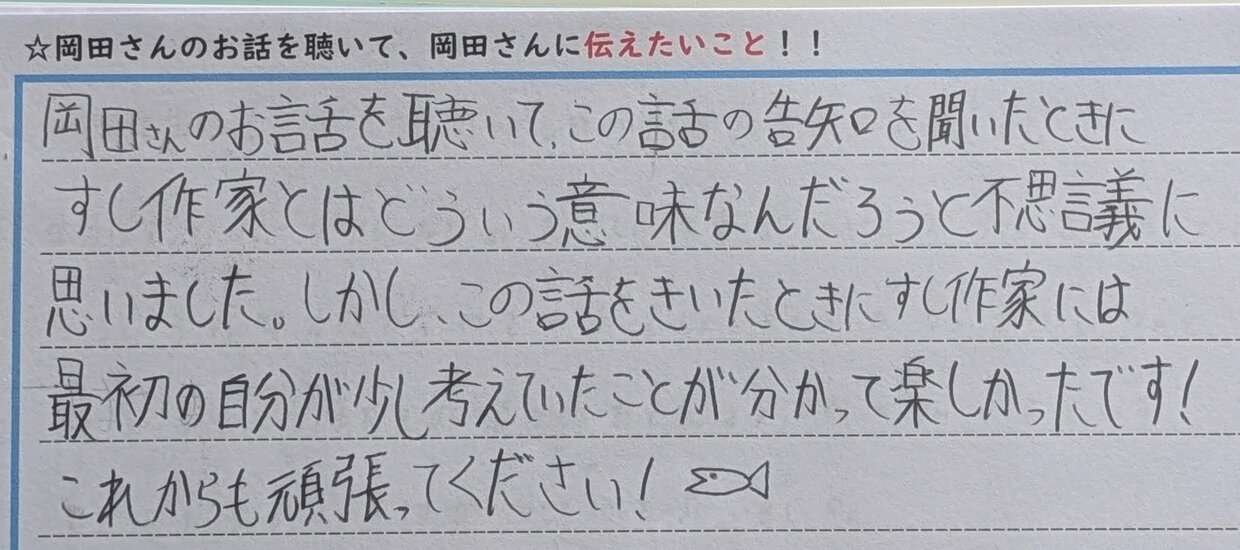 ☆岡田さんのお話を聴いて、岡田さんに伝えたいこと！！
岡田さんのお話を聴いて、この話の告知を聞いたときに
すし作家とはどういう意味なんだろうと不思議に
思いました。しかし、この話をきいたときにすし作家には
最初の自分が少し考えていたことが分かって楽しかったです！
これからも頑張ってください！